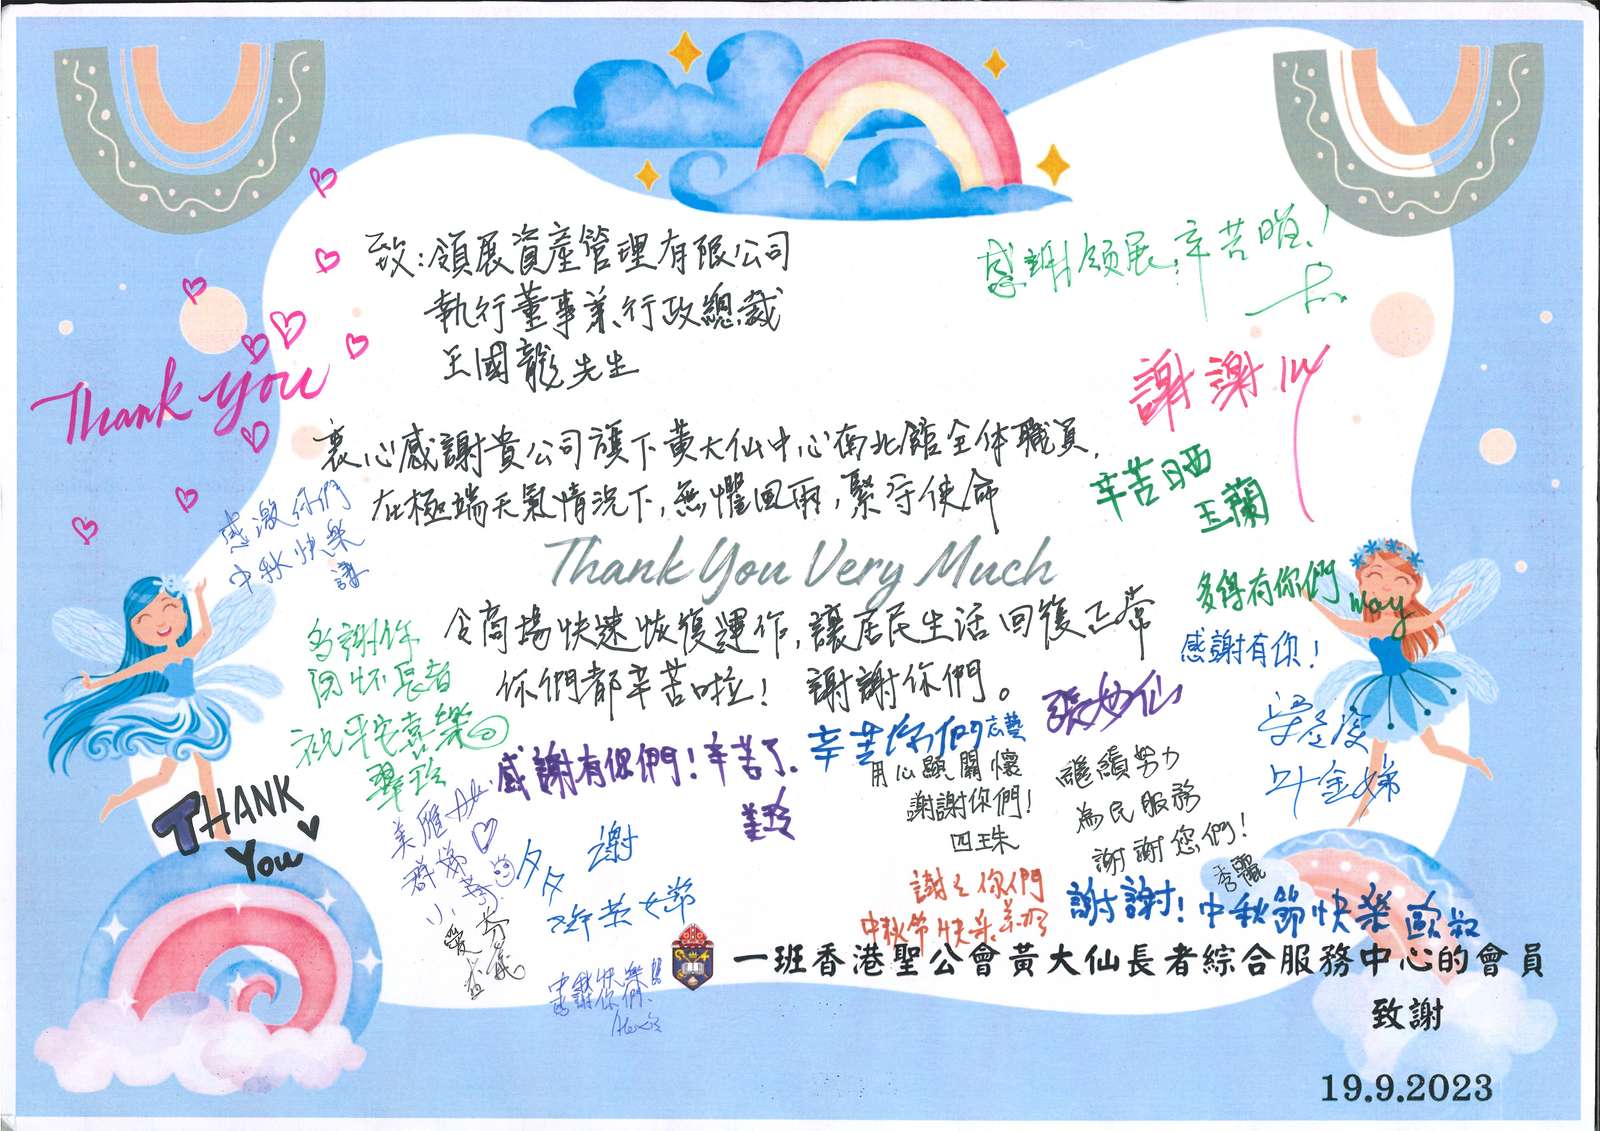 致：領展資產管理有限公司
執行董事兼行政總裁
王國龍先生
感謝領展，辛苦哂！
Thank you
謝謝
衷心感謝貴公司旗下黃大仙中心南北館全体職員，
在極端天氣情況下，無懼風雨，緊守使命
辛苦晒
玉蘭
感激你們
中秋快樂
Thank You Very Much
令商場快速恢復運作，讓居民生活回復正常
你們都辛苦啦！ 謝謝你們。
多得有你們
May
感謝有你！
多謝你
関怀長者
祝平安喜樂
翠玲
感謝有你們！辛苦了.
美玲
辛苦你們
用心顯關懷
謝謝你們！
四珠
繼續努力
為民服務
謝謝您們！
秀麗
叶金娣
THANK
You
夕夕 謝
謝之你們
中秋節快樂
謝謝！中秋節快樂 歐叔
中秋快樂
感謝你們
Alexis
一班香港聖公會黃大仙長者綜合服務中心的會員
致謝
19.9.2023